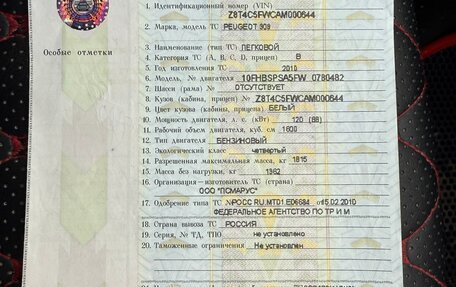 1. Идентификационный номер (VIN)
Z8T4C5FWCAM000644
2. Марка, модель ТС PEUGEOT 308
Особые отметки
3. Наименование (тип ТС) ЛЕГКОВОЙ
4. Категория ТС (А, В, С, D, прицеп) B
5. Год изготовления ТС 2010
6. Модель, № двигателя 10FHBSPSA5FW 0780482
7. Шасси (рама) № ОТСУТСТВУЕТ
8. Кузов (кабина, прицеп) № Z8T4C5FWCAM000644
9. Цвет кузова (кабины, прицепа) БЕЛЫЙ
10. Мощность двигателя, л. с. (кВт) 120 (88)
11. Рабочий объем двигателя, куб. см 1600
12. Тип двигателя БЕНЗИНОВЫЙ
13. Экологический класс четвертый
14. Разрешенная максимальная масса, кг 1815
15. Масса без нагрузки, кг 1362
16. Организация-изготовитель ТС (страна)
ООО "ПСМАРУС"
17. Одобрение типа ТС № РОСС RU.MT01.E06684 от 15.02.2010
ФЕДЕРАЛЬНОЕ АГЕНТСТВО ПО ТР И М
18. Страна вывоза ТС РОССИЯ
19. Серия, № ТД, ТПО не установлено
20. Таможенные ограничения не установлены